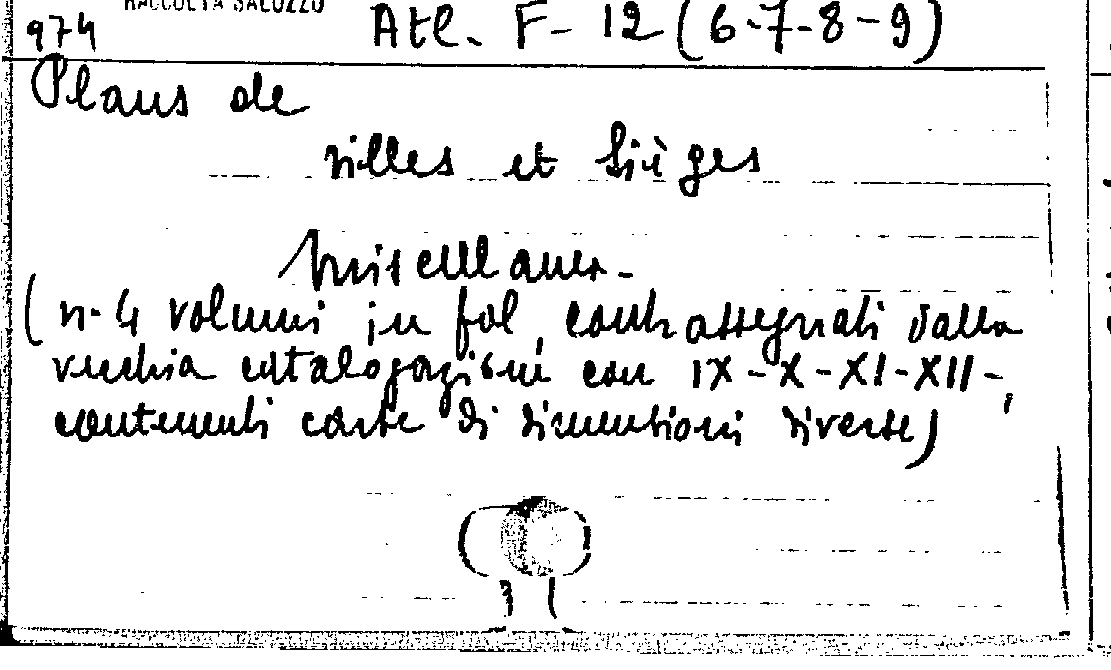 RACCOLTA SALUZZO
974 Atl. F- 12 (6-7-8-9)
Plans de
villes et Sièges
Miscellanea-
(n. 4 volumi in fol, contrassegnati dalla
vecchia catalogazione con IX-X-XI-XII-,
contenenti carte di dimensioni diverse)